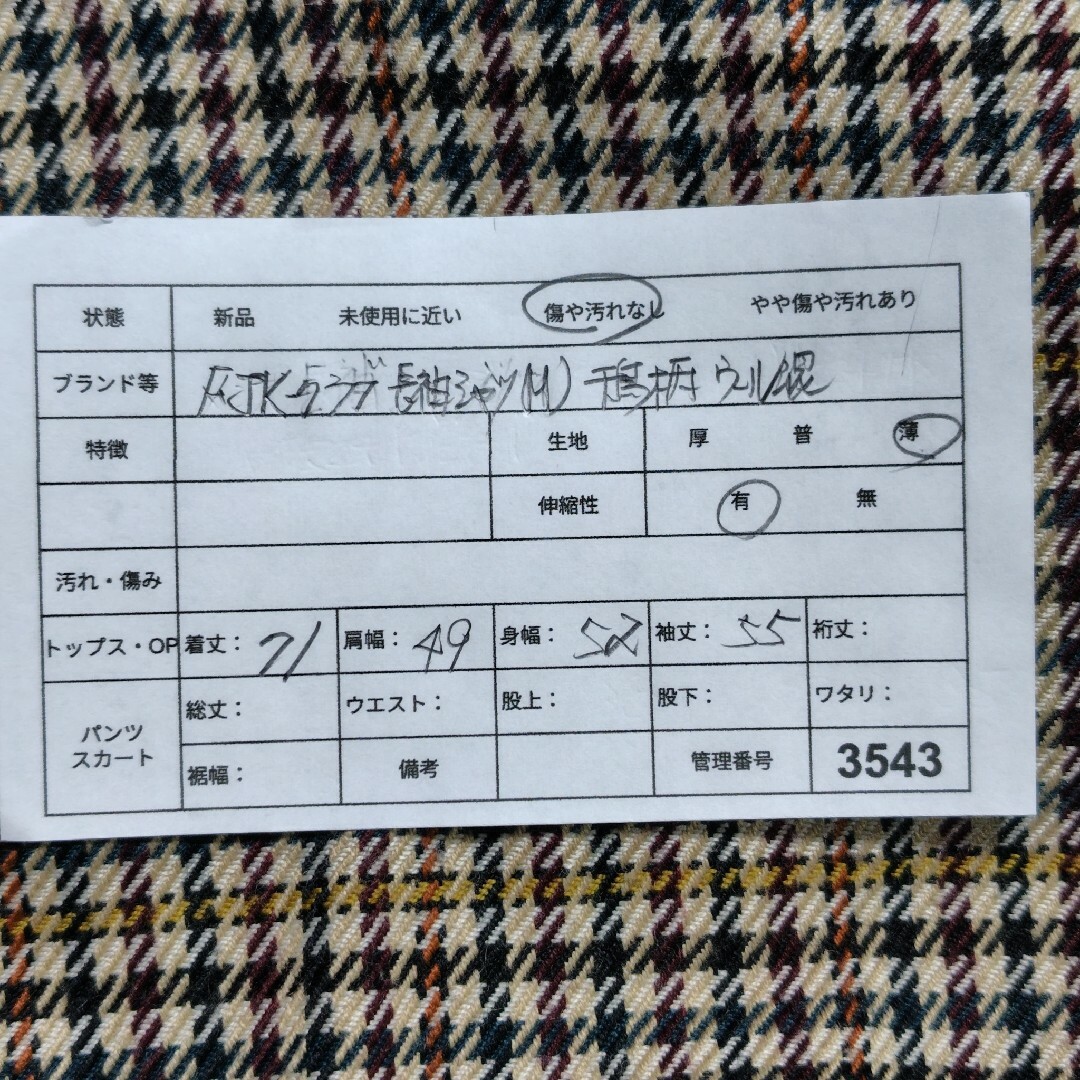 状態 新品 未使用に近い 傷や汚れなし やや傷や汚れあり
ブランド等 長袖シャツ(M) 千鳥柄 ウール混
特徴 生地 厚 普 薄
伸縮性 有 無
汚れ・傷み
トップス・OP 着丈: 71 肩幅: 49 身幅: 52 袖丈: 55 裄丈:
パンツ スカート 総丈: ウエスト: 股上: 股下: ワタリ:
裾幅: 備考 管理番号 3543